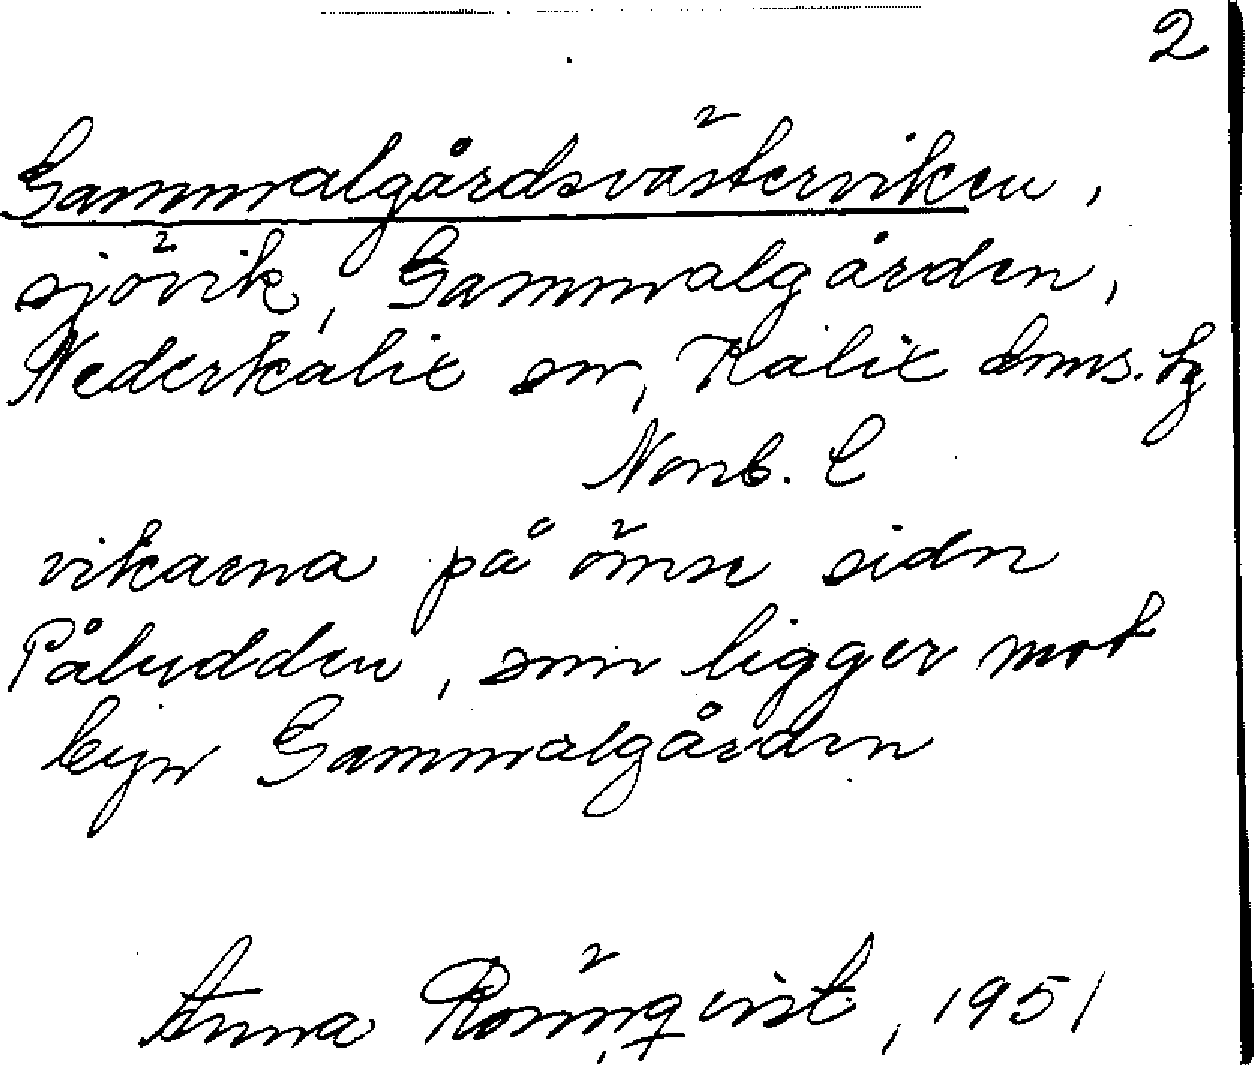 2
Gammalgårdsvästerviken,
sjövik, Gammalgården,
Nederkalix sn, Kalix doms. hg
Norrb. l
vikarna på ömse sidor
Påludden, som ligger mot
byn Gammalgården
Anna Rönnqvist, 1951